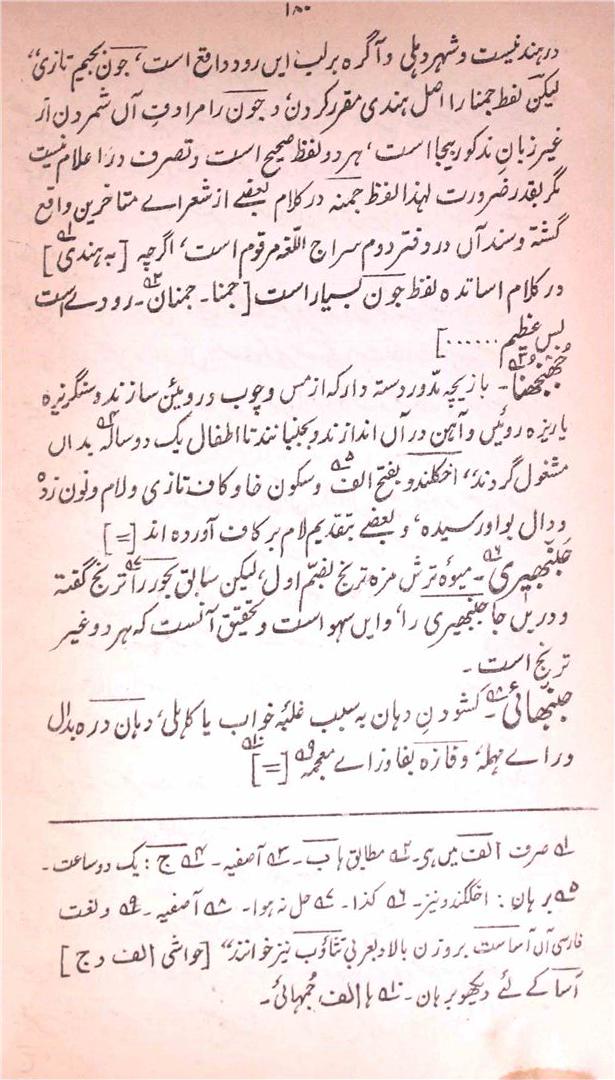 ۱۸۰
در ہند نیست و شہر دہلی و آگرہ بر لب ایں رود واقع است، جون بجیم تازی“
لیکن لفظ جمنا را اصل ہندی مقرر کردن، و جون را مرادف آں شمردن از
غیر زبان مذکور بیجا است، ہر دو لفظ صحیح است و تصرف در اعلام نیست
مگر بقدر ضرورت لہذا لفظ جمنہ در کلام بعضے از شعراے متاخرین واقع
گشتہ و سند آں در دفتر دوم سراج اللغہ مرقوم است، اگرچہ [بہ ہندی]۱
در کلام اساتدہ لفظ جون بسیار است [جمنا۔ جمنان۲۔ رودے است
بس عظیم......]
جھنجھنا۳۔ بازیچہ مدّور دستہ دار کہ از مس و چوب و روئین سازند و سنگریزہ
یا ریزہ روئیں و آہن در آں اندازند و بجنبانند تا اطفال یک دو سالہ۴ بداں
مشغول گردند“ اخکلندو۵ بفتح الف و سکون خا و کاف تازی و لام و نون زدہ
و دال بواو رسیدہ، و بعضے بتقدیم لام بر کاف آوردہ اند [=]
جنبھیری۶۔ میوہ ترش مزہ ترنج بضّم اول، لیکن سابق بجور۷ را ترنج گفتہ
و دریں جا جنبھیری را، و ایں سہو است و تحقیق آنست کہ ہر دو غیر
ترنج است۔
جنبھائی۸۔ کشودن دہان بہ سبب غلبۂ خواب یا کاہلی، دہان درہ بدال
و راے مہملہ، و فازہ بفا و زاے معجمہ۹ [=]۱۰
۱ صرف الف میں ہی۔ ۲ مطابق ہا ب۔ ۳ آصفیہ۔ ۴ ج : یک دو ساعت۔
۵ برہان : اخلکندو نیز۔ ۶ کذا۔ ۷ حل نہ ہوا۔ ۸ آصفیہ۔ ۹ و لغت
فارسی آں آسا ست بر وزن بالا و بعربی تثاؤب نیز خوانند“ [حواشی الف و ج]
آسا کے لئے دیکھو برہان۔ ۱۰ ہا الف جُمہائی۔